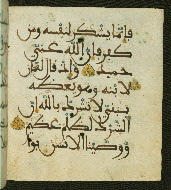 فإنما يشكر لنفسه ومن
كفر فإن الله غني
حميد وإذ قال لقمن
لابنه وهو يعظه
يبني لا تشرك بالله إن
الشرك لظلم عظيم
ووصينا الإنسن بو